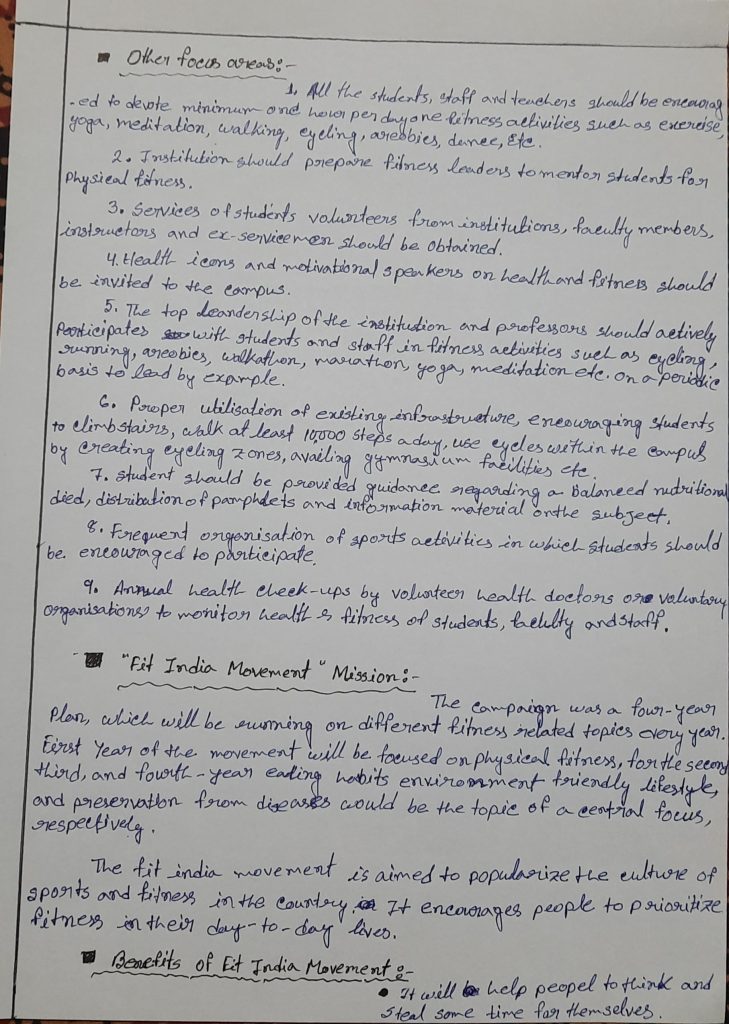 Other focus areas:-
1. All the students, staff and teachers should be encourag
-ed to devote minimum one hour per day one fitness activities such as exercise,
yoga, meditation, walking, cycling, areobics, dance, Etc.
2. Institution should prepare fitness leaders to mentor students for
Physical fitness.
3. Services of students volunteers from institutions, faculty members,
instructors and ex-servicemen should be obtained.
4. Health icons and motivational speakers on health and fitness should
be invited to the campus.
5. The top leandership of the institution and professors should actively
Participates with students and staff in fitness activities such as cycling,
running, areobics, walkathon, marathon, yoga, meditation etc. on a periodic
basis to lead by example.
6. Proper utilisation of existing infrastructure, encouraging students
to climb stairs, walk at least 10,000 steps a day, use cycles within the campus
by creating cycling zones, availing gymnasium facilities etc.
7. Student should be provided guidance regarding a Balanced nutritional
died, distribution of pamphlets and information material on the subject.
8. Frequent organisation of sports activities in which students should
be encouraged to participate.
9. Annual health check-ups by volunteer health doctors or voluntary
organisations to monitor health & fitness of students, faculty and staff.
"Fit India Movement" Mission:-
The campaign was a four-year
Plan, which will be running on different fitness related topics every year.
First Year of the movement will be focused on physical fitness, for the second
third, and fourth-year eating habits environment friendly lifestyle,
and preservation from diseases would be the topic of a central focus,
respectively.
The fit india movement is aimed to popularize the culture of
sports and fitness in the country. It encourages people to prioritize
fitness in their day-to-day lives.
Benefits of Fit India Movement:-
• It will help peopel to think and
steal some time for themselves.